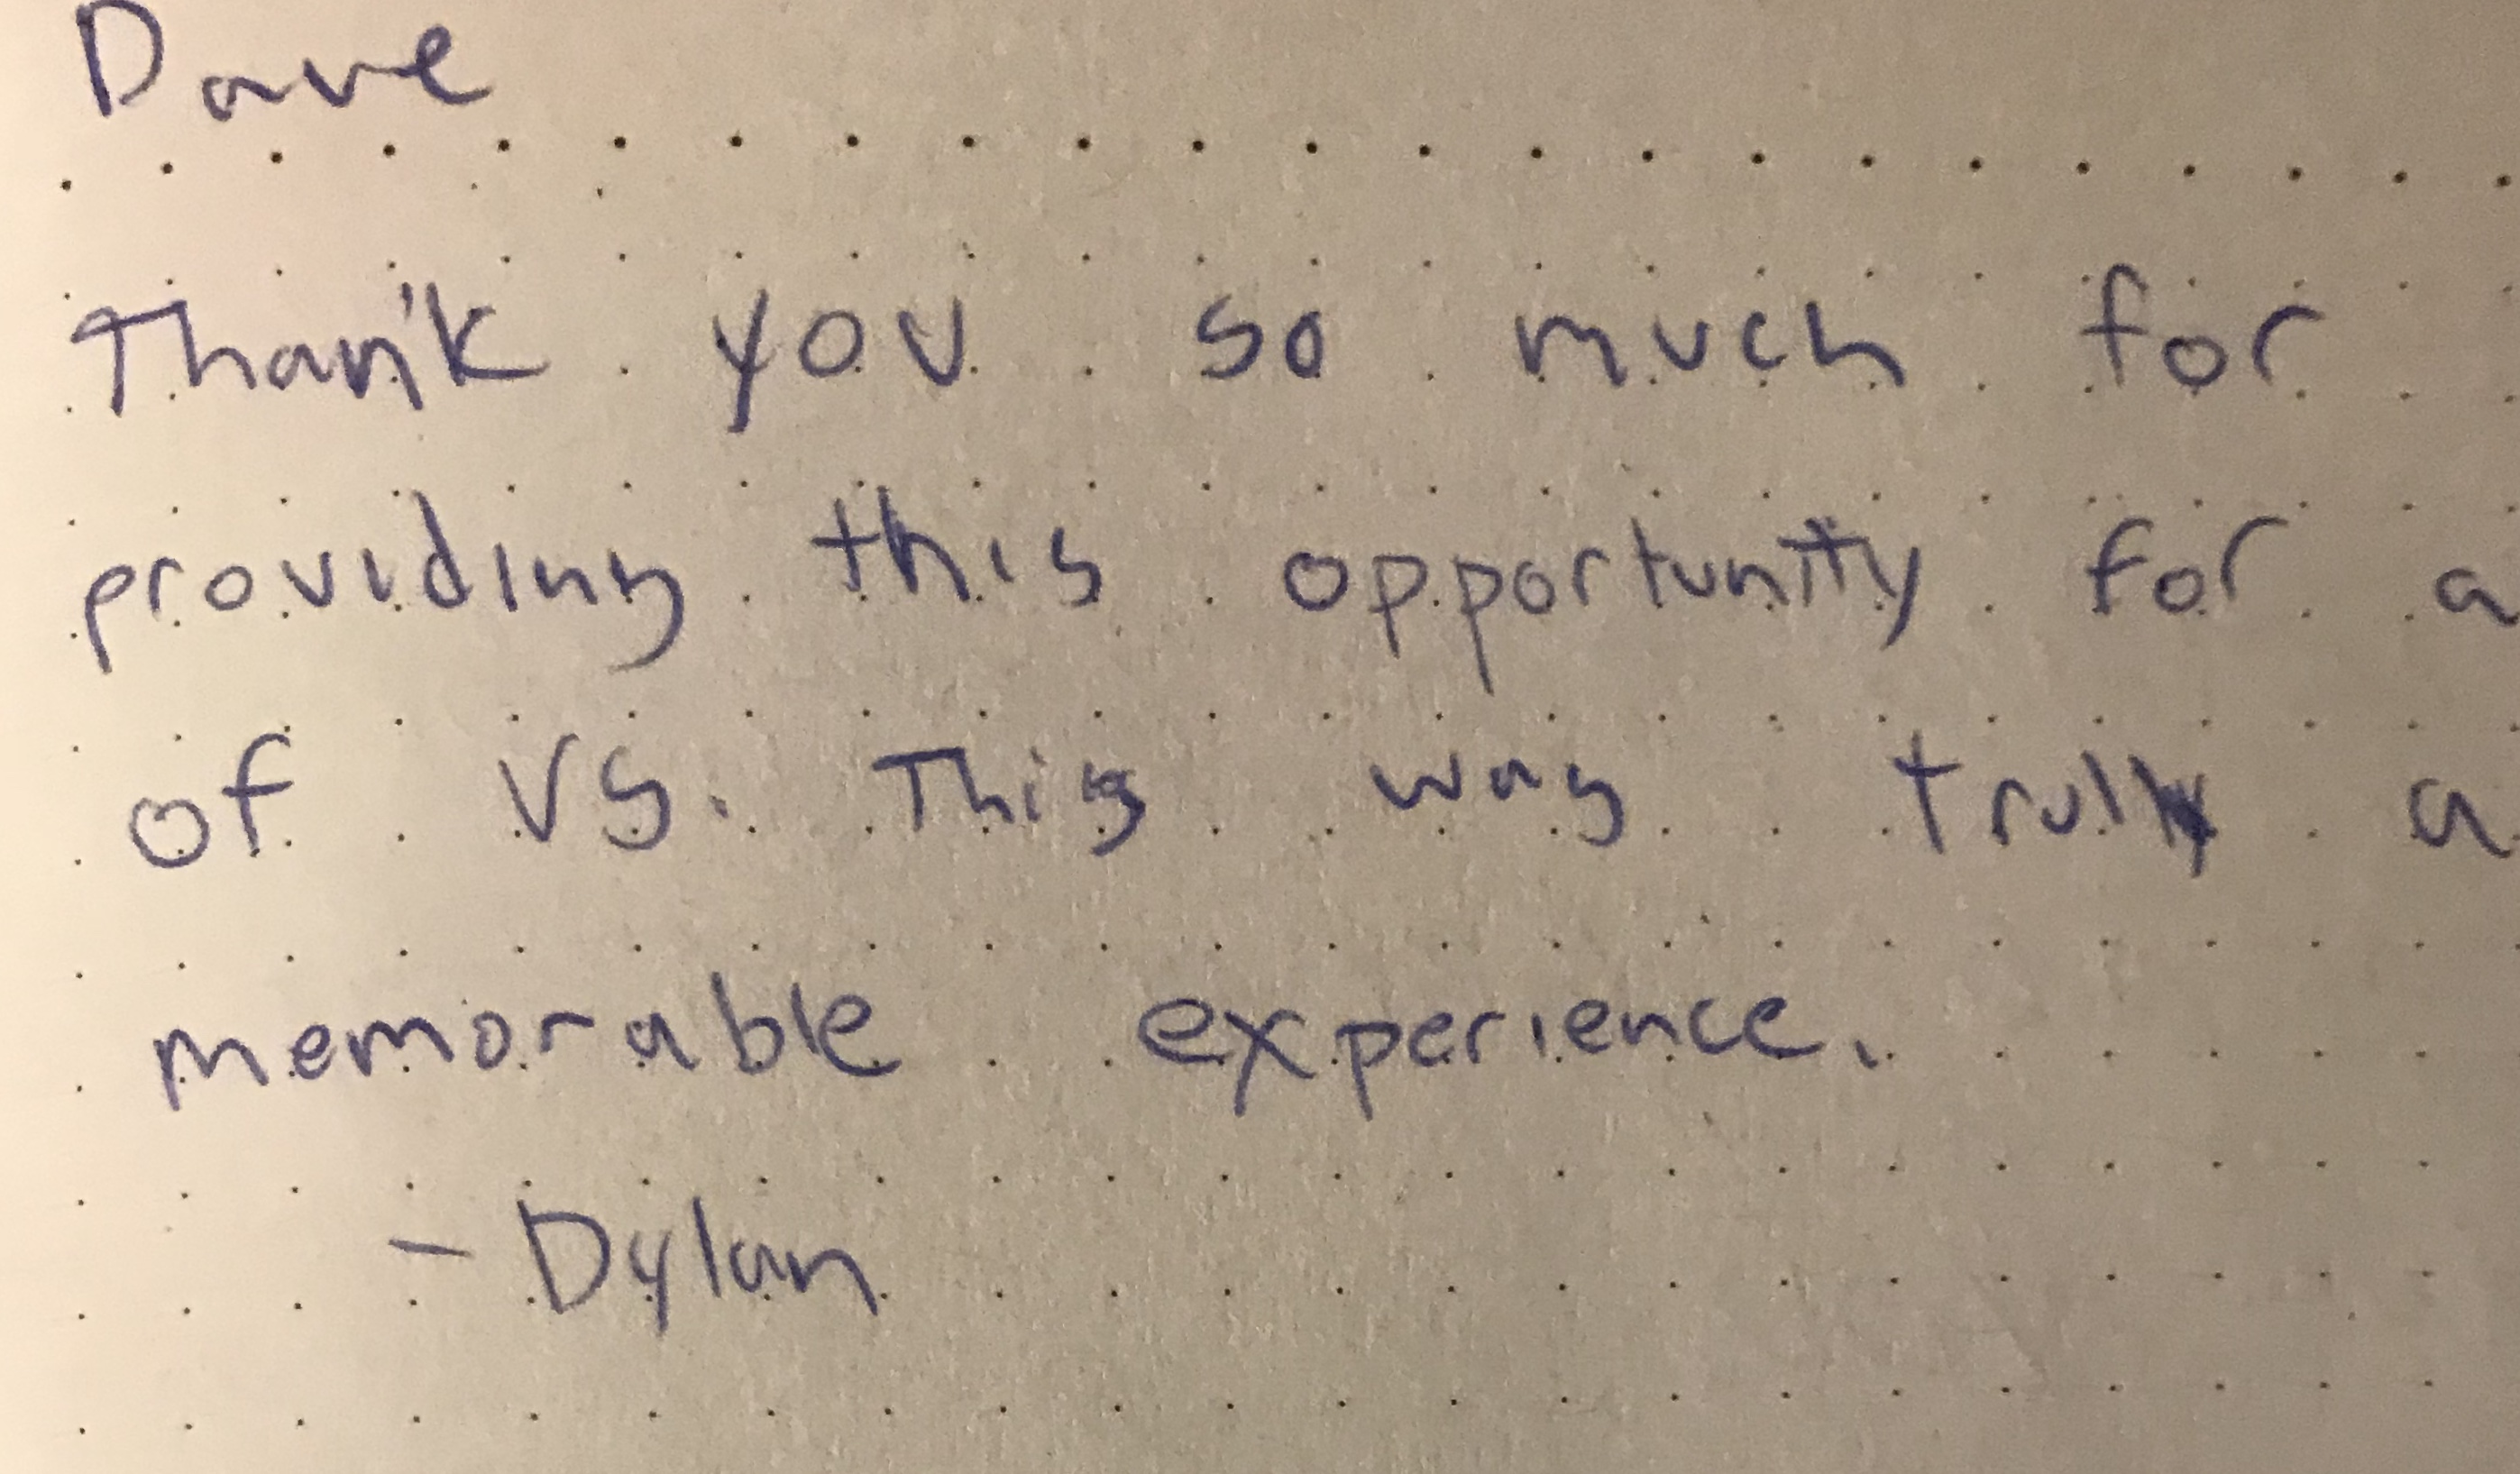 Dave
Thank you so much for
providing this opportunity for a
of us. This was truly a
memorable experience.
- Dylan